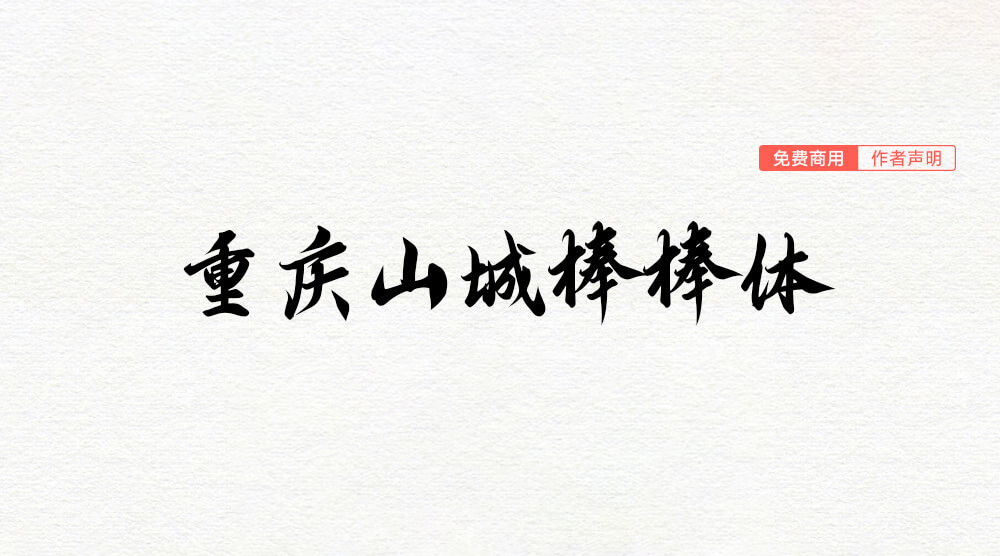 免费商用 作者声明
重庆山城棒棒体